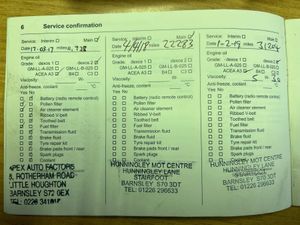 6 Service confirmation
Service: Interim Main
Date 17-03-17 miles 8,728
Engine oil
Grade: dexos 1 dexos 2
GM-LL-A-025 GM-LL-B-025
ACEA A3 B4 C3
Viscosity: W-
Anti-freeze, coolant
Yes No
Battery (radio remote control)
Pollen filter
Air cleaner element
Ribbed V-belt
Toothed belt
Fuel filter
Transmission fluid
Brake fluid
Tyre repair kit
Brake pads front / rear
Spark plugs
APEX AUTO FACTORS
ROTHERHAM ROAD
LITTLE HOUGHTON
BARNSLEY S72 0EX
Service: Interim Main
Date 4/4/18 miles 22283
Engine oil
Grade: dexos 1 dexos 2
GM-LL-A-025 GM-LL-B-025
ACEA A3 B4 C3
Viscosity: W-
Anti-freeze, coolant
Yes No
Battery (radio remote control)
Pollen filter
Air cleaner element
Ribbed V-belt
Toothed belt
Fuel filter
Transmission fluid
Brake fluid
Tyre repair kit
Brake pads front / rear
Spark plugs
HUNNINGLEY MOT CENTRE
HUNNINGLEY LANE
STAIRFOOT
BARNSLEY S70 3DT
TEL: 01226 299633
Service: Interim Main
miles 31204
Engine oil
Grade: dexos 1 dexos 2
GM-LL-A-025 GM-LL-B-025
ACEA A3 B4 C3
Viscosity: 5 W- 30
Anti-freeze, coolant
Yes No
Battery (radio remote control)
Pollen filter
Air cleaner element
Ribbed V-belt
Toothed belt
Fuel filter
Transmission fluid
Brake fluid
Tyre repair kit
Brake pads front / rear
Spark plugs
HUNNINGLEY MOT CENTRE
HUNNINGLEY LANE
STAIRFOOT
BARNSLEY S70 3DT
TEL: 01226 299633